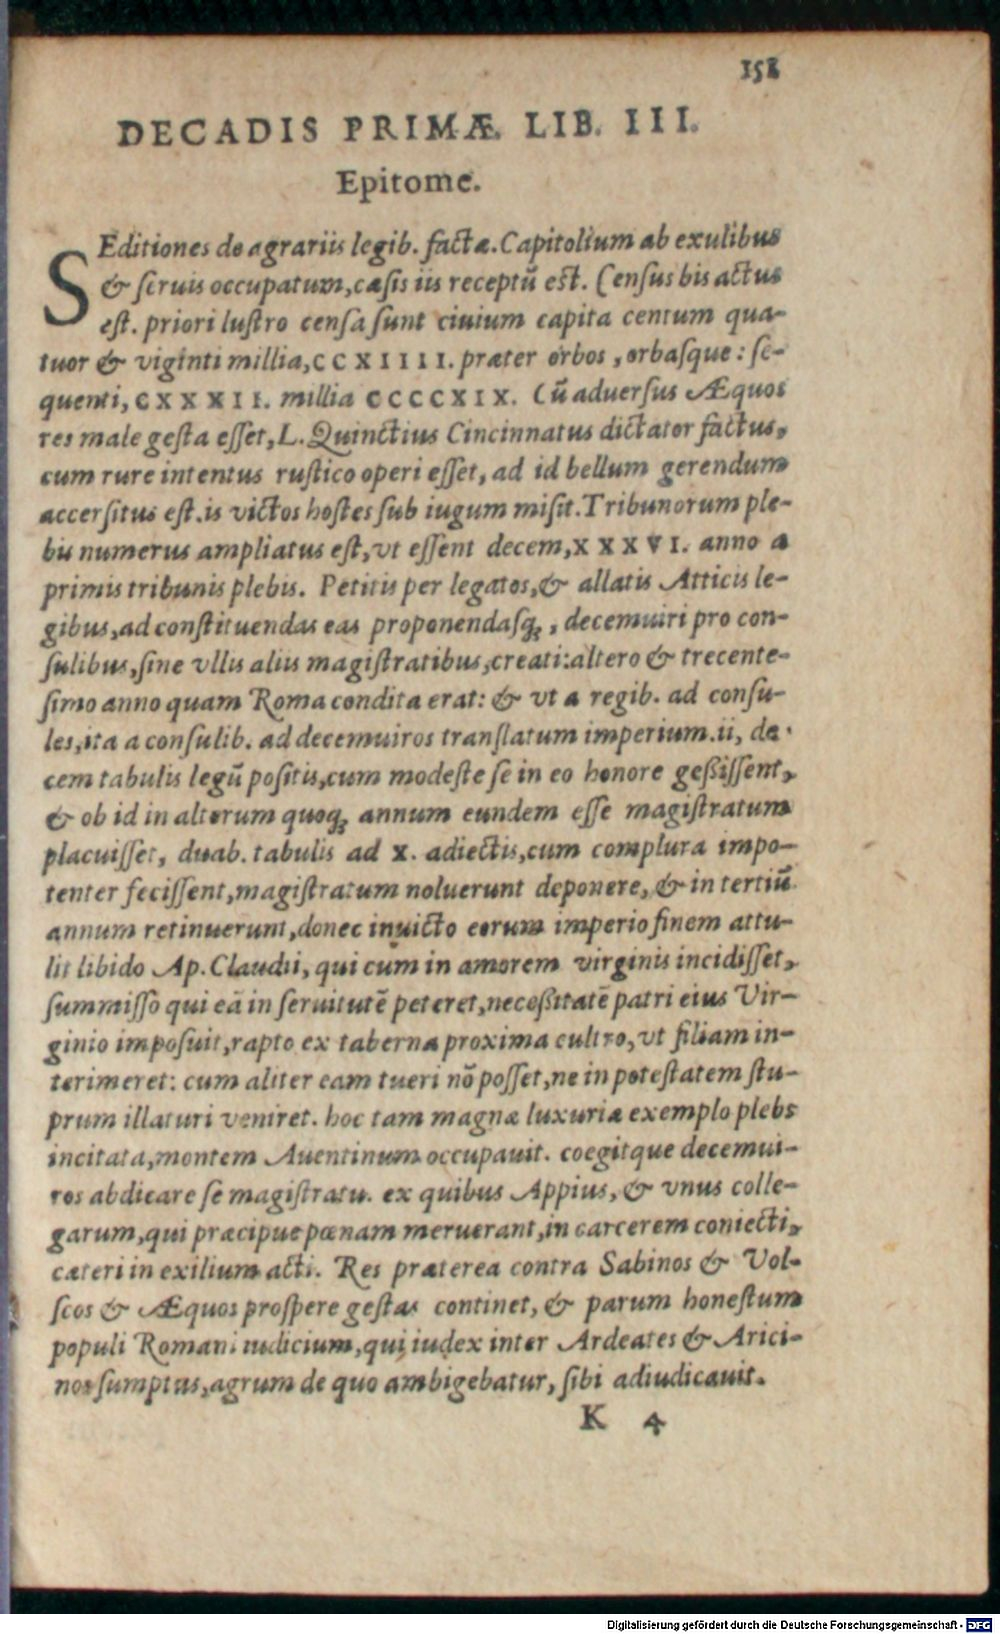 151
DECADIS PRIMÆ. LIB. III.
Epitome.
SEditiones de agrariis legib. factæ. Capitolium ab exulibus
& seruis occupatum, cæsis iis receptũ est. Census bis actus
est. priori lustro censa sunt ciuium capita centum qua-
tuor & viginti millia, CCXIIII. præter orbos, orbasque: se-
quenti, CXXXII. millia CCCCXIX. Cũ aduersus Æquos
res male gesta esset, L. Quinctius Cincinnatus dictator factus,
cum rure intentus rustico operi esset, ad id bellum gerendum
accersitus est. is victos hostes sub iugum misit. Tribunorum ple-
bis numerus ampliatus est, vt essent decem, XXXVI. anno a
primis tribunis plebis. Petitis per legatos, & allatis Atticis le-
gibus, ad constituendas eas proponendasq́;, decemuiri pro con-
sulibus, sine vllis aliis magistratibus, creati: altero & trecente-
simo anno quam Roma condita erat: & vt a regib. ad consu-
les, ita a consulib. ad decemuiros translatum imperium. ii, de-
cem tabulis legũ positis, cum modeste se in eo honore geßissent,
& ob id in alterum quoq; annum eundem esse magistratum
placuisset, duab. tabulis ad X. adiectis, cum complura impo-
tenter fecissent, magistratum noluerunt deponere, & in tertiũ
annum retinuerunt, donec inuicto eorum imperio finem attu-
lit libido Ap. Claudii, qui cum in amorem virginis incidisset,
summisso qui eã in seruitutẽ peteret, neceßitatẽ patri eius Vir-
ginio imposuit, rapto ex taberna proxima cultro, vt filiam in-
terimeret: cum aliter eam tueri nõ posset, ne in potestatem stu-
prum illaturi veniret. hoc tam magnæ luxuriæ exemplo plebs
incitata, montem Auentinum occupauit. coegitque decemui-
ros abdicare se magistratu. ex quibus Appius, & vnus colle-
garum, qui præcipue pœnam meruerant, in carcerem coniecti,
cæteri in exilium acti. Res præterea contra Sabinos & Vol-
scos & Æquos prospere gestas continet, & parum honestum
populi Romani iudicium, qui iudex inter Ardeates & Arici-
nos sumptus, agrum de quo ambigebatur, sibi adiudicauit.
K 4
Digitalisierung gefördert durch die Deutsche Forschungsgemeinschaft - DFG